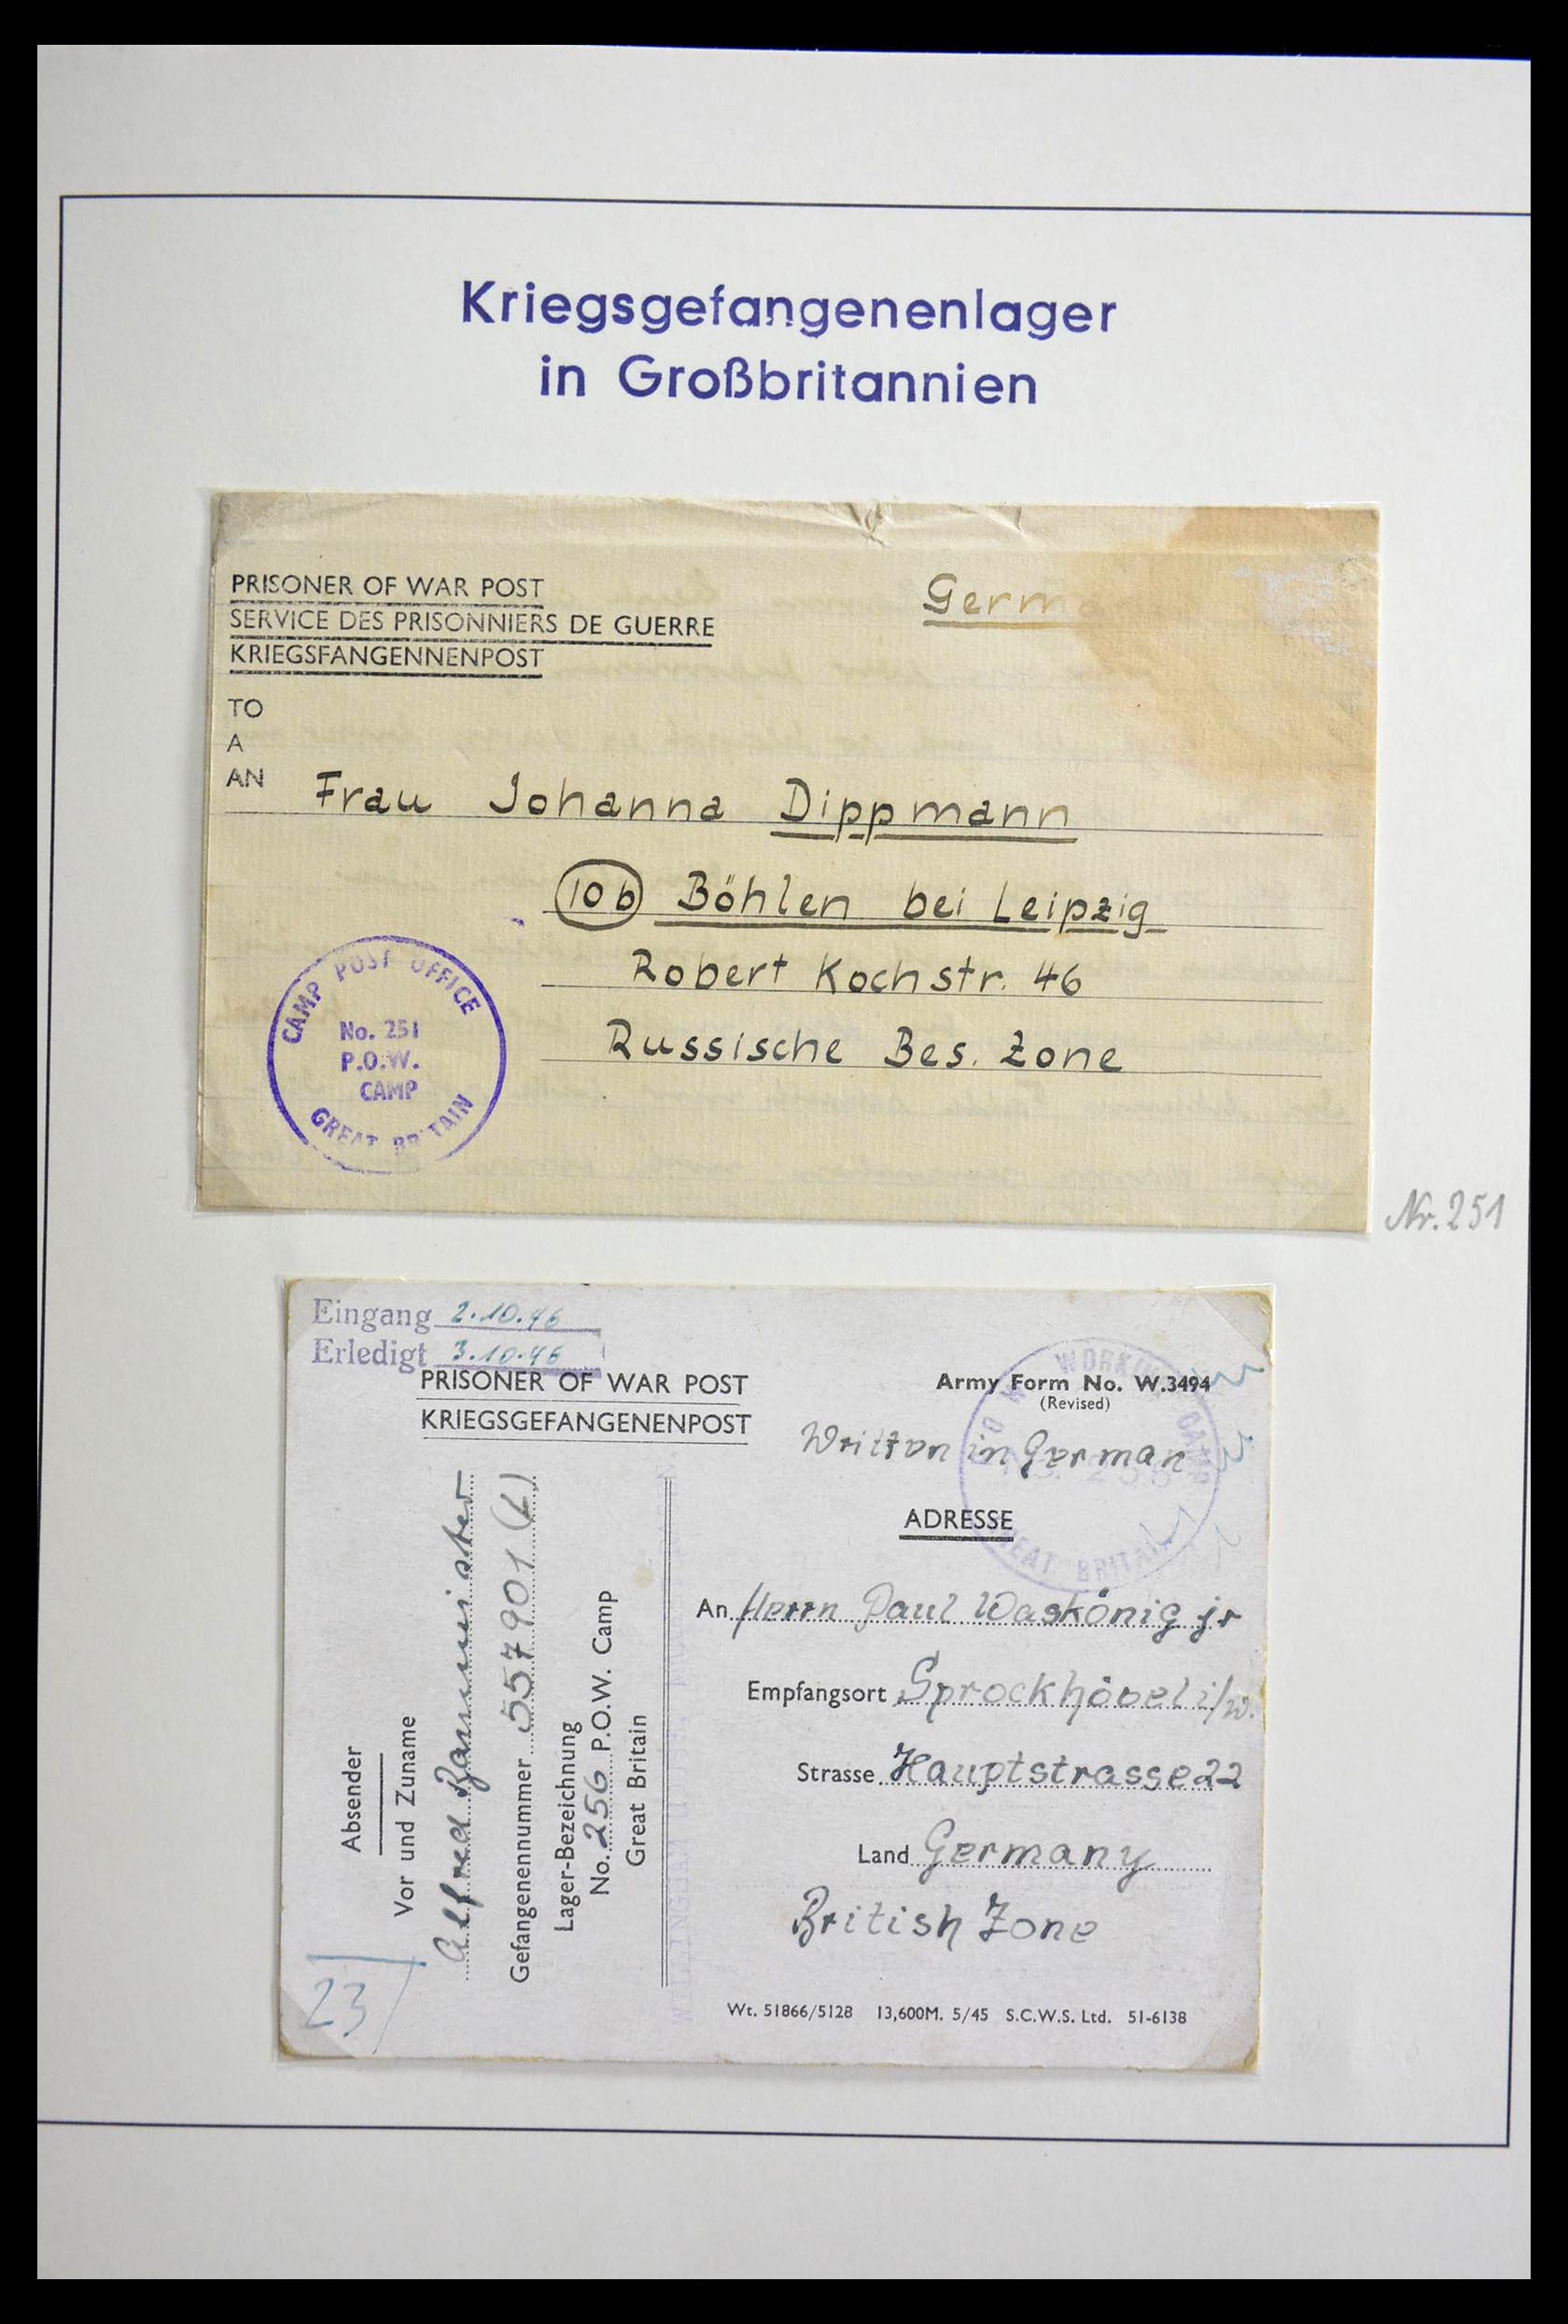 Kriegsgefangenenlager
in Großbritannien
PRISONER OF WAR POST
SERVICE DES PRISONNIERS DE GUERRE
KRIEGSFANGENNENPOST
Germa
TO
A
AN
Frau Johanna Dippmann
10b Böhlen bei Leipzig
Robert Kochstr. 46
Russische Bes. Zone
CAMP POST OFFICE
No. 251
P.O.W.
CAMP
GREAT BRITAIN
Nr. 251
Eingang 2.10.46
Erledigt 3.10.46
PRISONER OF WAR POST
KRIEGSGEFANGENENPOST
Army Form No. W.3494
(Revised)
Written in German
P.O.W. WORKING CAMP
GREAT BRITAIN
ADRESSE
An Herrn Paul Waskönig jr
Empfangsort Sprockhövel i/w.
Strasse Hauptstrasse 22
Land Germany
British Zone
Wt. 51866/5128 13,600M. 5/45 S.C.W.S. Ltd. 51-6138
Absender
Vor und Zuname
Alfred
Gefangenennummer 557901 (L)
Lager-Bezeichnung
No. 256 P.O.W. Camp
Great Britain
23